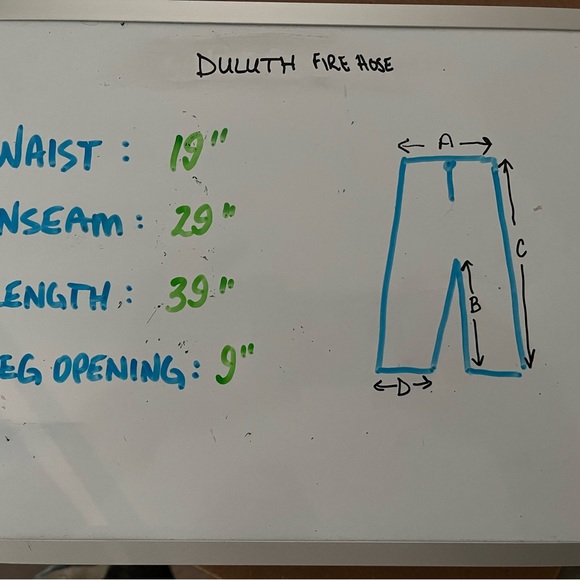 DULUTH FIRE HOSE
WAIST: 19"
NSEAM: 29"
LENGTH: 39"
EG OPENING: 9"
A
C
B
D